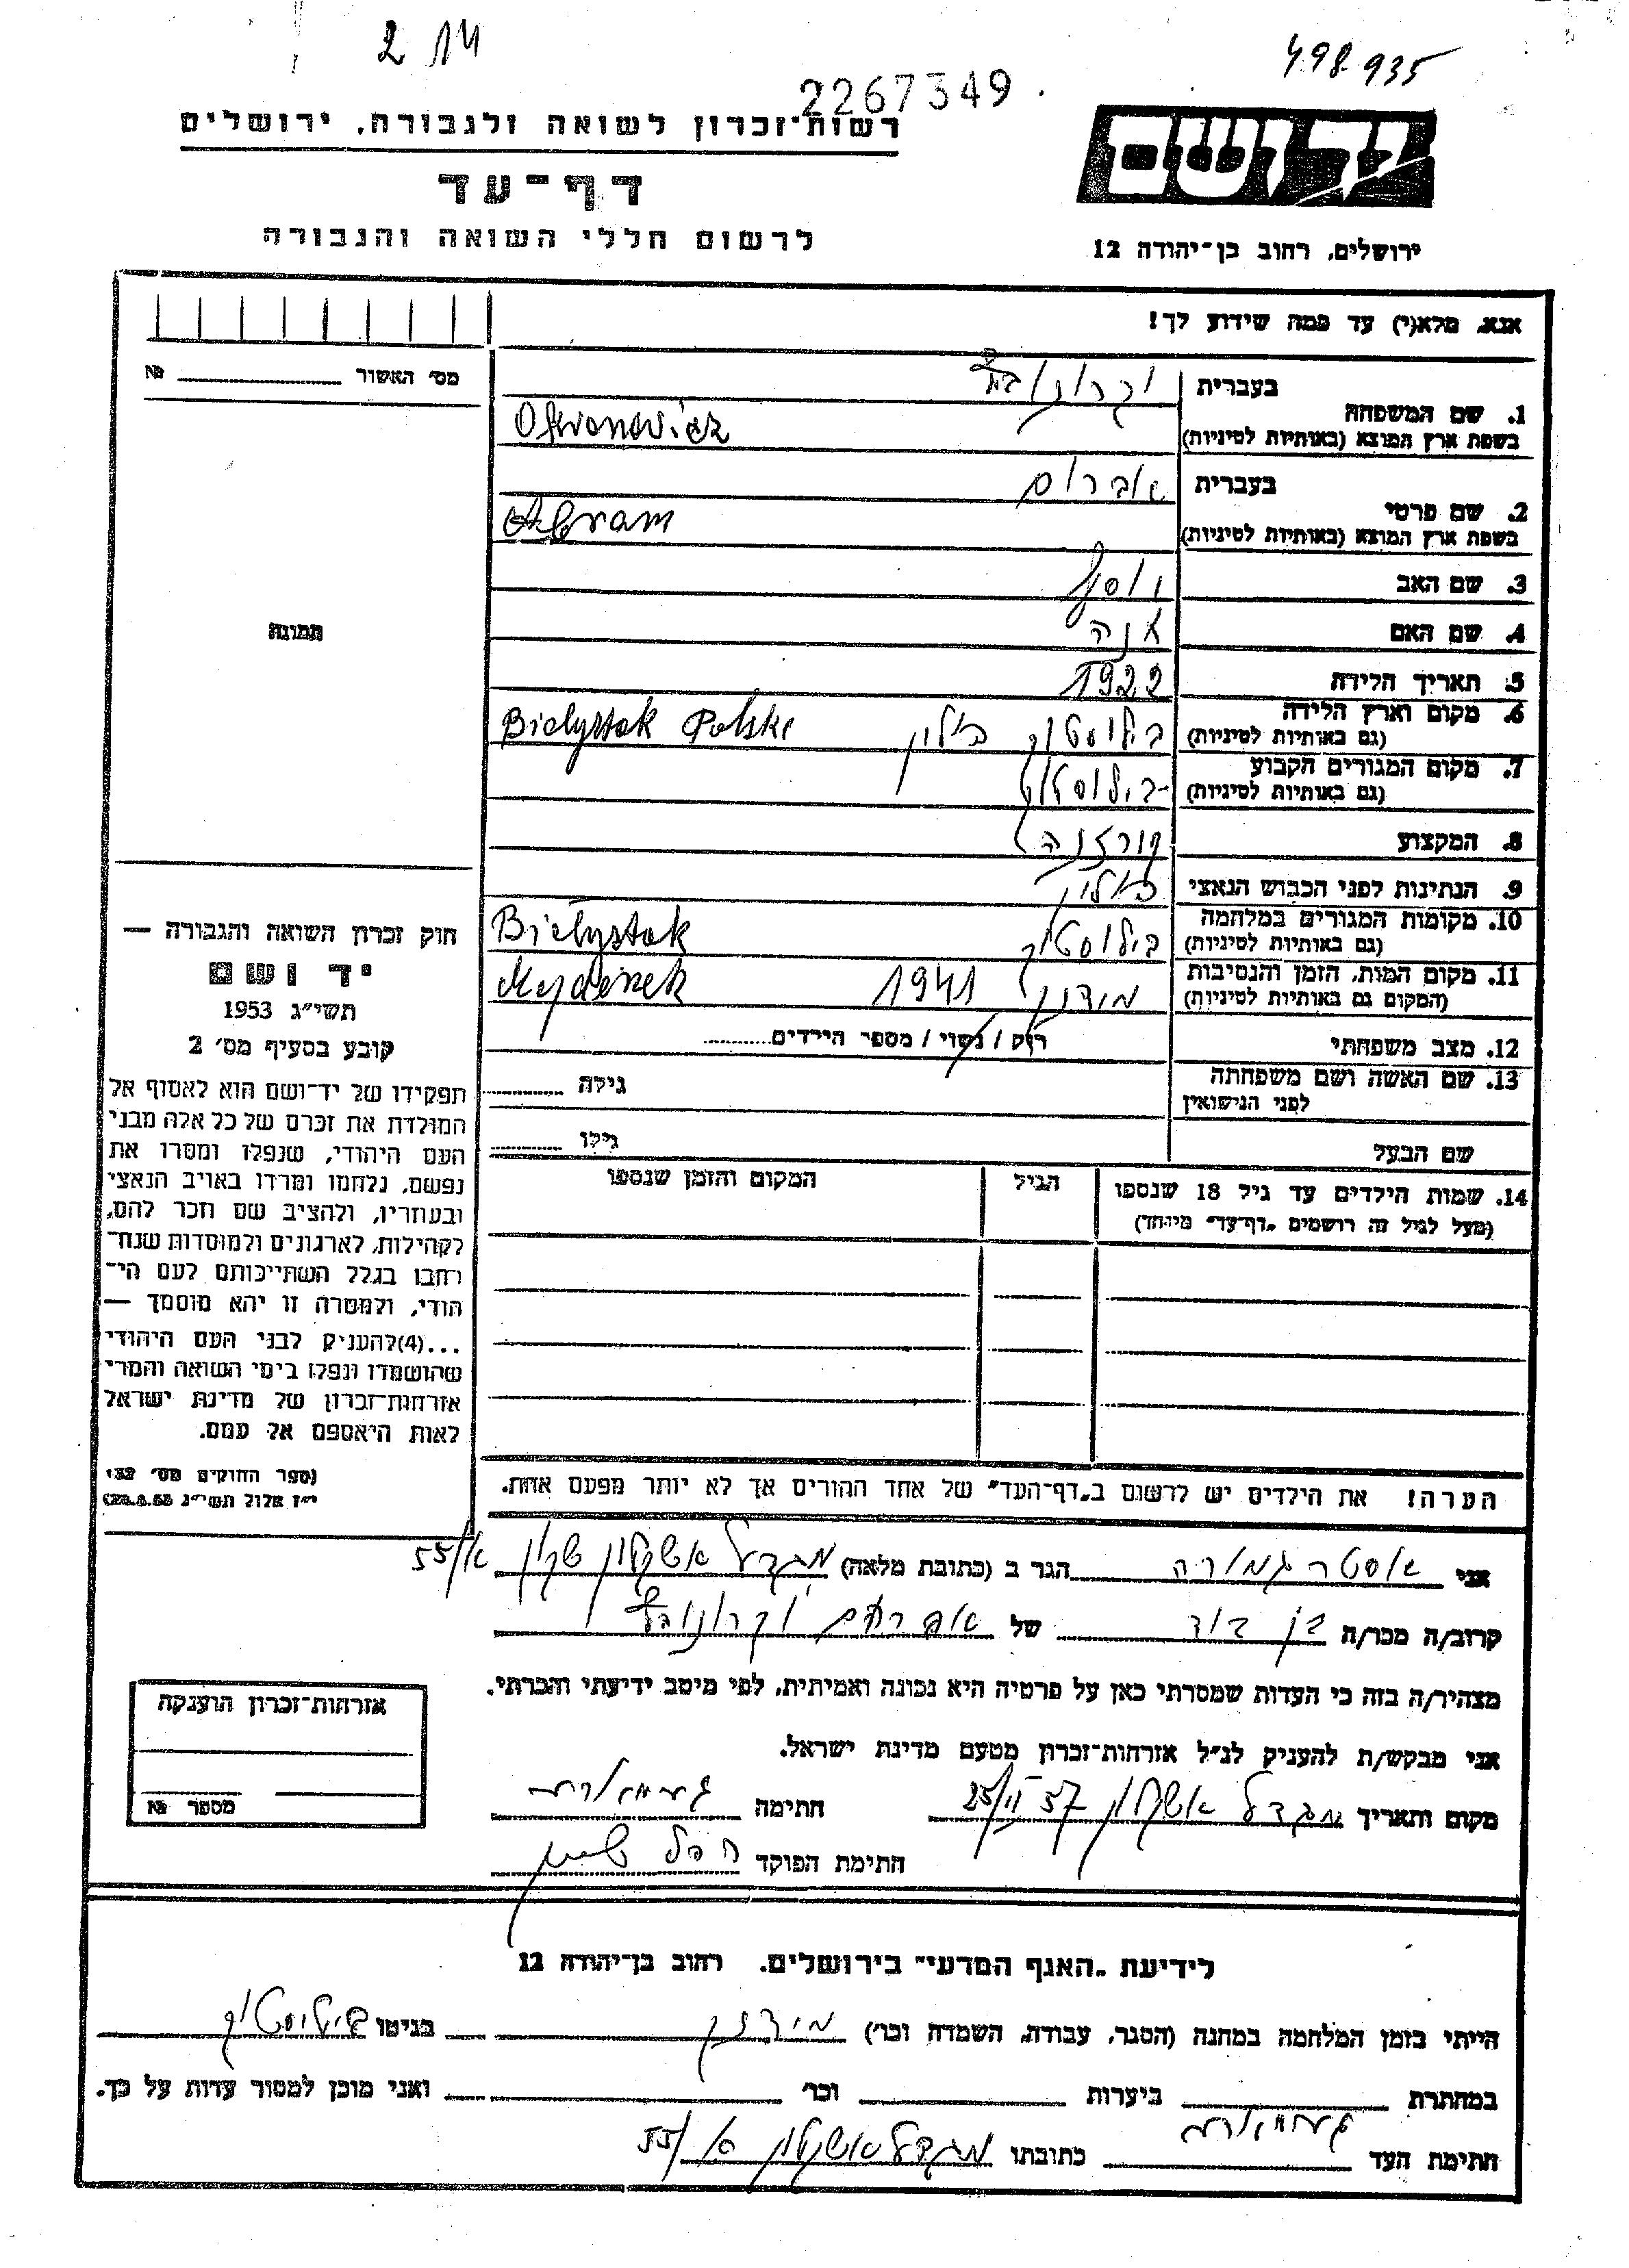 498935
2267349
יד ושם
רשות־זכרון לשואה ולגבורה, ירושלים
דף־עד
לרשום חללי השואה והגבורה
ירושלים, רחוב בן־יהודה 12
אנא, מלא(י) עד כמה שידוע לך!
מס׳ האשור № 
1. שם המשפחה
בעברית
בשפת ארץ המוצא (באותיות לטיניות)
2. שם פרטי
בעברית אברום
בשפת ארץ המוצא (באותיות לטיניות) Abram
3. שם האב יוסף
4. שם האם אנה
5. תאריך הלידה 1922
6. מקום וארץ הלידה
(גם באותיות לטיניות) בילוסטוק פולין Bialystok Polski
7. מקום המגורים הקבוע
(גם באותיות לטיניות) בילוסטוק
8. המקצוע
9. הנתינות לפני הכבוש הנאצי פולין
10. מקומות המגורים במלחמה
(גם באותיות לטיניות) בילוסטוק Bialystok
11. מקום המות, הזמן והנסיבות
(המקום גם באותיות לטיניות) מידנק 1941 Majdenek
12. מצב משפחתי רווק / נשוי / מספר הילדים
13. שם האשה ושם משפחתה גילה
לפני הנישואין
שם הבעל גילו
14. שמות הילדים עד גיל 18 שנספו הגיל המקום והזמן שנספו
(מעל לגיל זה רושמים „דף־עד״ מיוחד)
תמונה
חוק זכרון השואה והגבורה —
יד ושם
תשי״ג 1953
קובע בסעיף מס׳ 2
תפקידו של יד־ושם הוא לאסוף אל
המולדת את זכרם של כל אלה מבני
העם היהודי, שנפלו ומסרו את
נפשם, נלחמו ומרדו באויב הנאצי
ובעוזריו, ולהציב שם וזכר להם,
לקהילות, לארגונים ולמוסדות שנח־
רבו בגלל השתייכותם לעם הי־
הודי, ולמטרה זו יהא מוסמך —
...(4)להעניק לבני העם היהודי
שהושמדו ונפלו בימי השואה והמרי
אזרחות־זכרון של מדינת ישראל
לאות היאספם אל עמם.
(ספר החוקים מס׳ 132,
י״ז אלול תשי״ג 28.8.53)
הערה! את הילדים יש לרשום ב„דף־העד״ של אחד ההורים אך לא יותר מפעם אחת.
אני אסטר הגר ב (כתובת מלאה) מגדל אשקלון שכון א/55
קרוב/ה מכר/ה בן דוד של אברהם
מצהיר/ה בזה כי העדות שמסרתי כאן על פרטיה היא נכונה ואמיתית, לפי מיטב ידיעתי והכרתי.
אני מבקש/ת להעניק לנ״ל אזרחות־זכרון מטעם מדינת ישראל.
מקום ותאריך מגדל אשקלון 25/II 57 חתימה
חתימת הפוקד
אזרחות־זכרון הוענקה
מספר №
לידיעת „האגף המדעי״ בירושלים. רחוב בן־יהודה 12
הייתי בזמן המלחמה במחנה (הסגר, עבודה, השמדה וכו׳) מידנק בגיטו ביליסטוק
במחתרת ביערות וכו׳ ואני מוכן למסור עדות על כך.
חתימת העד כתובתו מגדל אשקלון א/55